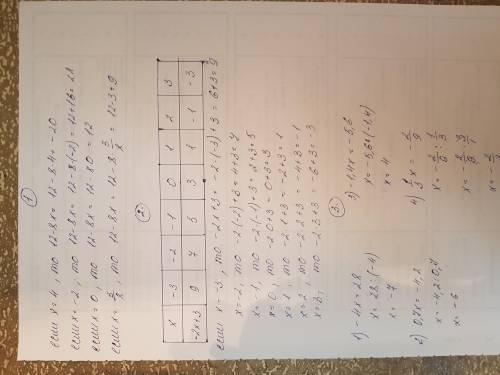 1
если x=4, то 12-8x=12-8·4=-20
если x=-2, то 12-8x=12-8·(-2)=12+16=28
если x=0, то 12-8x=12-8·0=12
то 12-8x=12-8·
=12-3=9
2.
x -3 -2 -1 0 1 2 3
-2x+3 9 7 5 3 1 -1 -3
если x=-3, то -2x+3=-2·(-3)+3=6+3=9
то -2·(-2)+3=4+3=7
то -2·(-1)+3=2+3=5
x=0, то -2·0+3=0+3=3
x=1, то -2·1+3=-2+3=1
x=2, то -2·2+3=-4+3=-1
x=3, то -2·3+3=-6+3=-3
3.
1) -4x=28
x=28:(-4)
x=-7
2) 0,7x=-4,2
x=-4,2:0,7
x=-6
3) -1,4x=-5,6
x=-5,6:(-1,4)
x=4
4) 1/3 x=-2/9
x=-2/9:1/3
x=-2/9·3/1